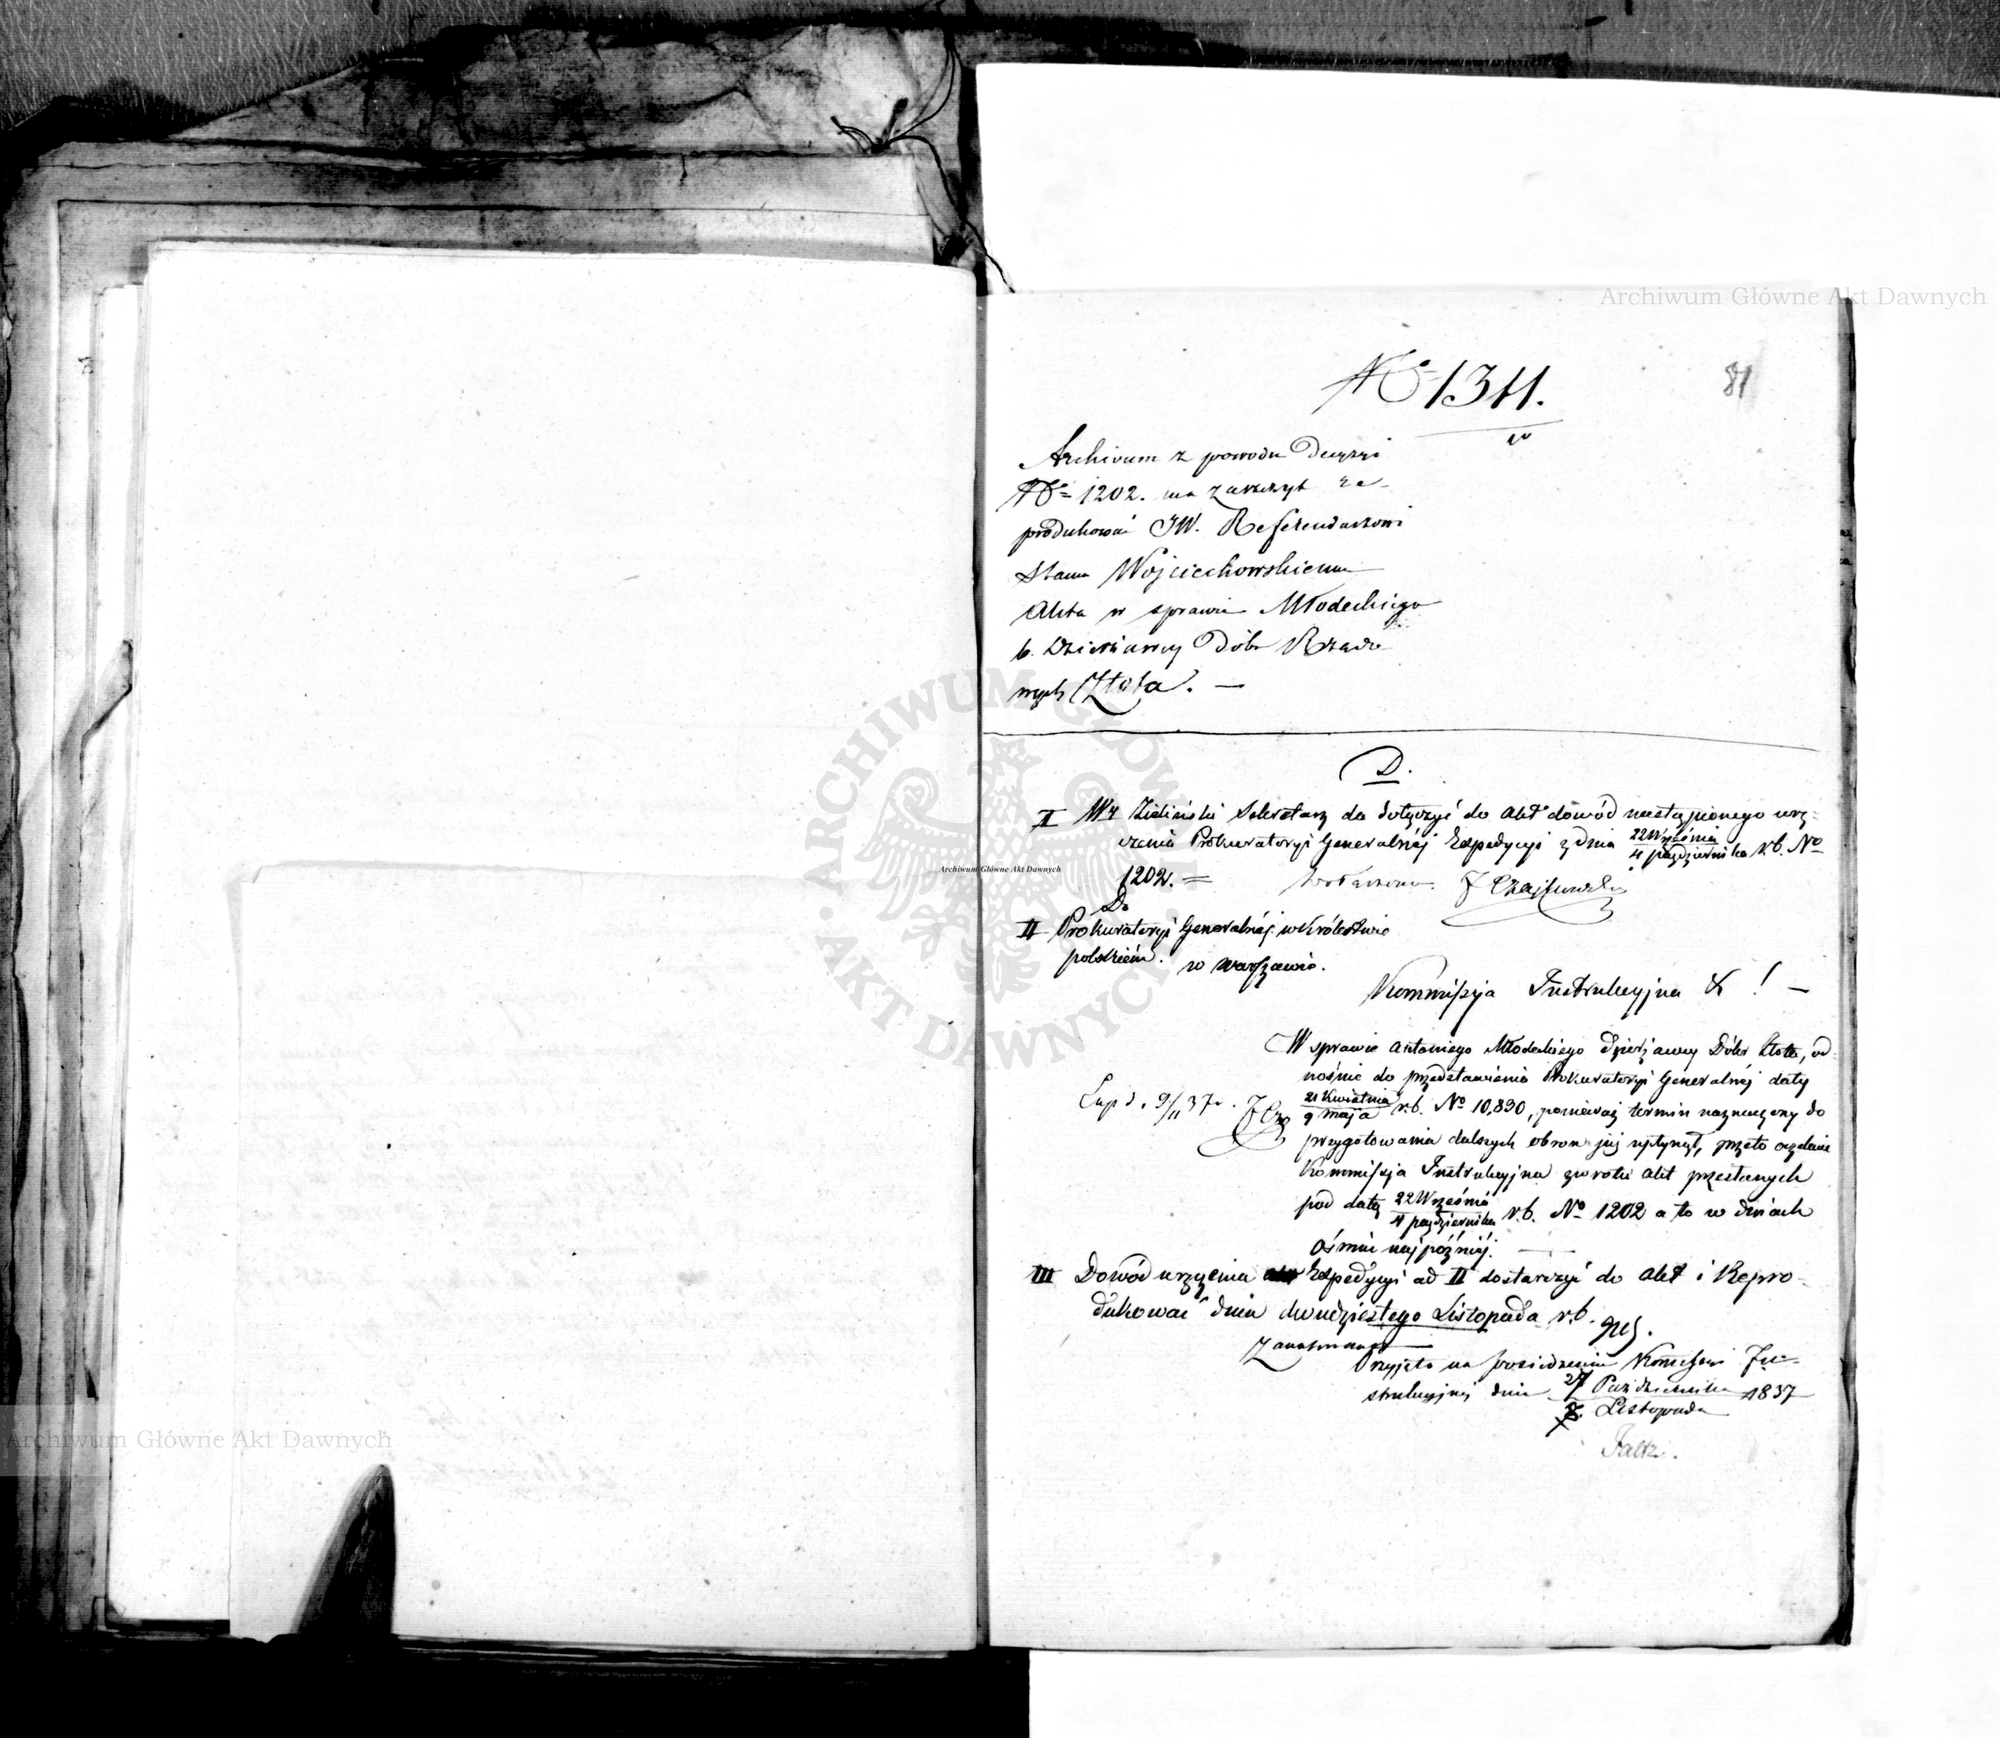 Archiwum Główne Akt Dawnych
№ 1311.
81
Archivum z powodu Decyzyi
№ 1202. ma zaszczyt re-
produkować JW. Referendarzowi
Stanu Wojciechowskiemu
Akta w sprawie Młodeckiego
b. Dzierżawcy Dóbr Rządo
wych Złota. —
D.
I Wy Zieliński Sekretarz da dołączyć do akt dowód nastąpionego wrę-
czenia Prokuratoryi Generalnéj Expedycyi z dnia 22 Września / 4 października r.b. No
1202. =
Do
II Prokuratoryi Generalnéj w Królestwie
polskiém. w Warszawie.
Kommissyja Instrukcyjna &! —
W sprawie Antoniego Młodeckiego dzierżawcy Dóbr Złota, od-
nośnie do przedstawienia Prokuratoryi Generalnéj daty
21 Kwietnia / 9 maja r.b. No 10,890, ponieważ termin naznaczony do
przygotowania dalszych obron już upłynął, przeto oczekuie
Kommissyja Instrukcyjna zwrotu akt przesłanych
pod datą 22 Września / 4 października r.b. No 1202 a to w dniach
ośmiu najpóźniéj. —
Exp d. 9/11 37 r.
III Dowód wręczenia Expedycyi ad II dostarczyć do akt i Repro-
dukować dnia dwudziestego Listopada r.b.
Przyjęto na posiedzeniu Kommissyi In-
strukcyjnej dnia 27 Października / 8. Listopada 1837
Archiwum Główne Akt Dawnych
ARCHIWUM GŁÓWNE AKT DAWNYCH
Archiwum Główne Akt Dawnych